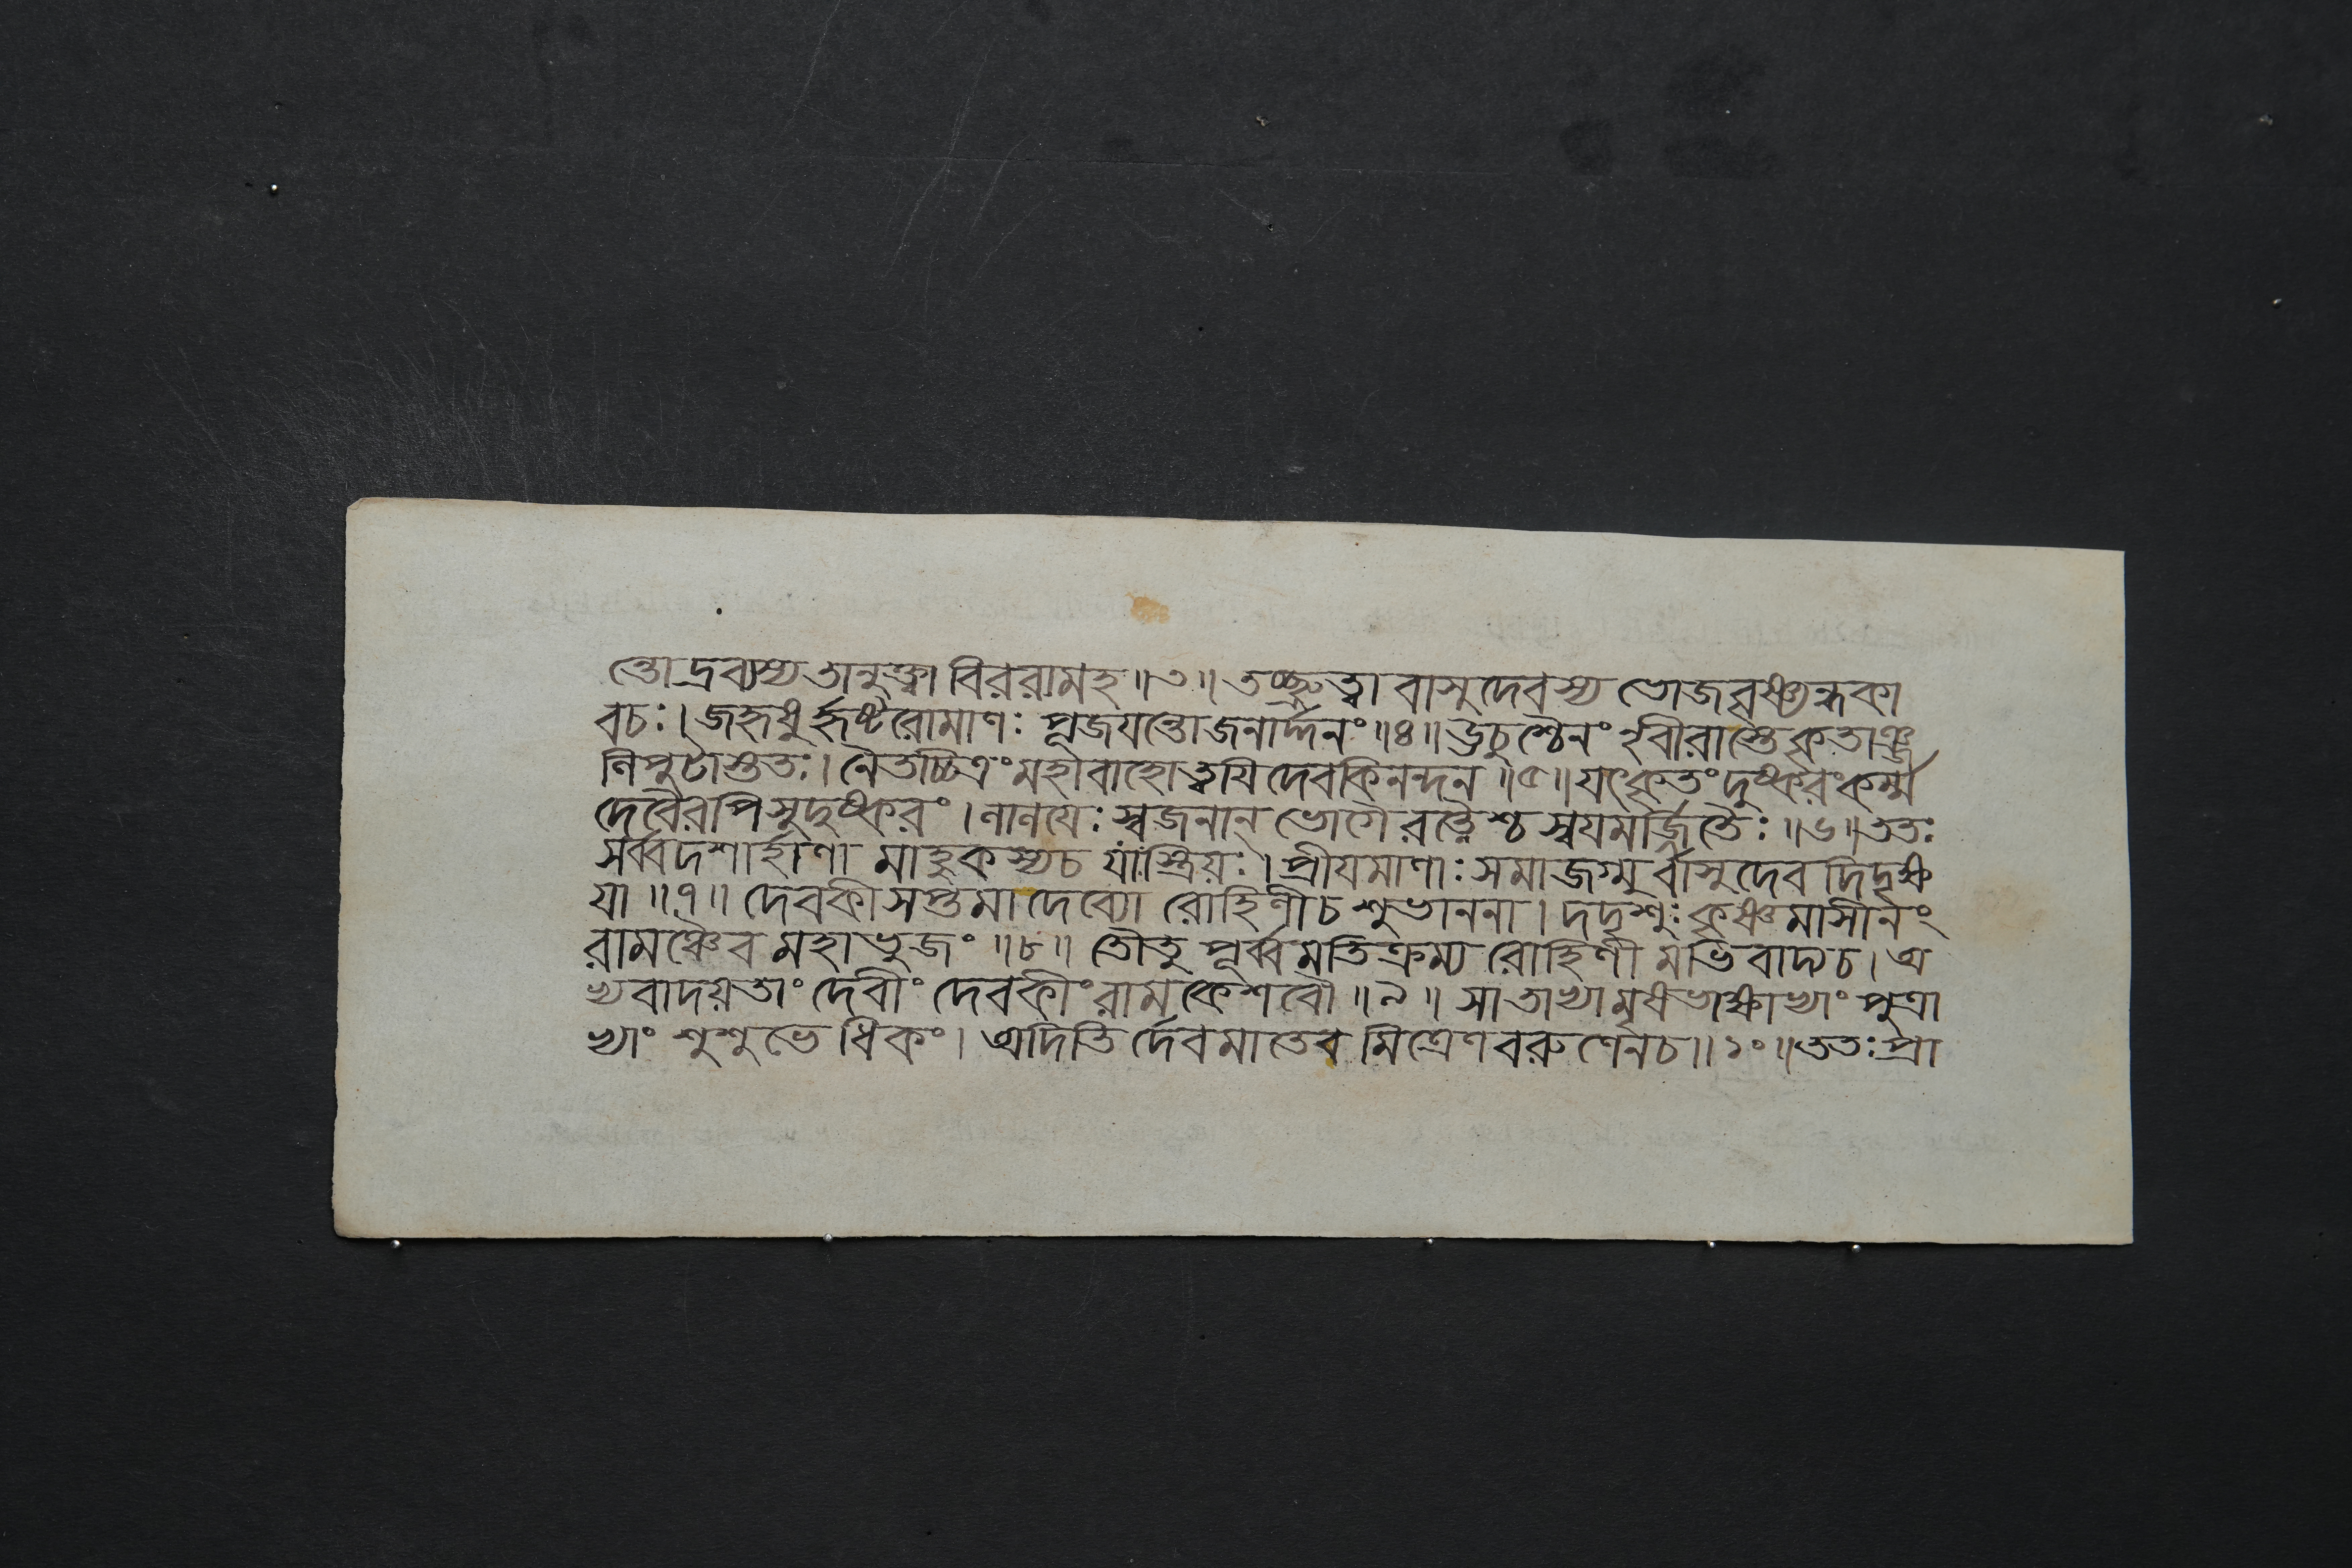 ন্তো দ্রব্যস্য তানুক্ত্বা বিররামহ ॥ ৩ ॥ তচ্ছ্রুত্বা বাসুদেবস্য ভোজবৃষ্ণ্যন্ধকা
বচঃ । জহৃষু র্হৃষ্টরোমাণঃ পূজযন্তোজনার্দ্দনং ॥ ৪ ॥ ঊচুশ্চৈনং নৃবীরাস্তেকৃতাঞ্জ
লিপুটাস্ততঃ । নৈতচ্চিত্রংমহাবাহোত্বযিদেবকিনন্দন ॥ ৫ ॥ যৎকৃতংদুষ্করংকর্ম্ম
দেবৈরপিসুদুষ্করং । লালযেঃ স্বজনান্ ভোগৈ রত্নৈশ্চ স্বযমর্জ্জিতৈঃ ॥ ৬ ॥ ততঃ
সর্ব্বদশার্হাণা মাহুকস্যচ যাঃস্ত্রিয়ঃ । প্রীযমাণাঃ সমাজগ্মু র্বাসুদেব দিদৃক্ষ
যা ॥ ৭ ॥ দেবকীসপ্তমাদেব্যো রোহিণীচ শুভাননা । দদৃশুঃ কৃষ্ণমাসীনং
রামঞ্চৈব মহাভুজং ॥ ৮ ॥ তৌতু পূর্ব্বমতিক্রম্য রোহিণী মভিবাদ্যচ । অ
ভ্যবাদয়তাং দেবীং দেবকীং রামকেশবৌ ॥ ৯ ॥ সাতাভ্যামৃষভাক্ষাভ্যাং পুত্রা
ভ্যাং শুশুভে ধিকং । অদিতি র্দেবমাতেব মিত্রেণবরুণেনচ ॥ ১০ ॥ ততঃ প্রা